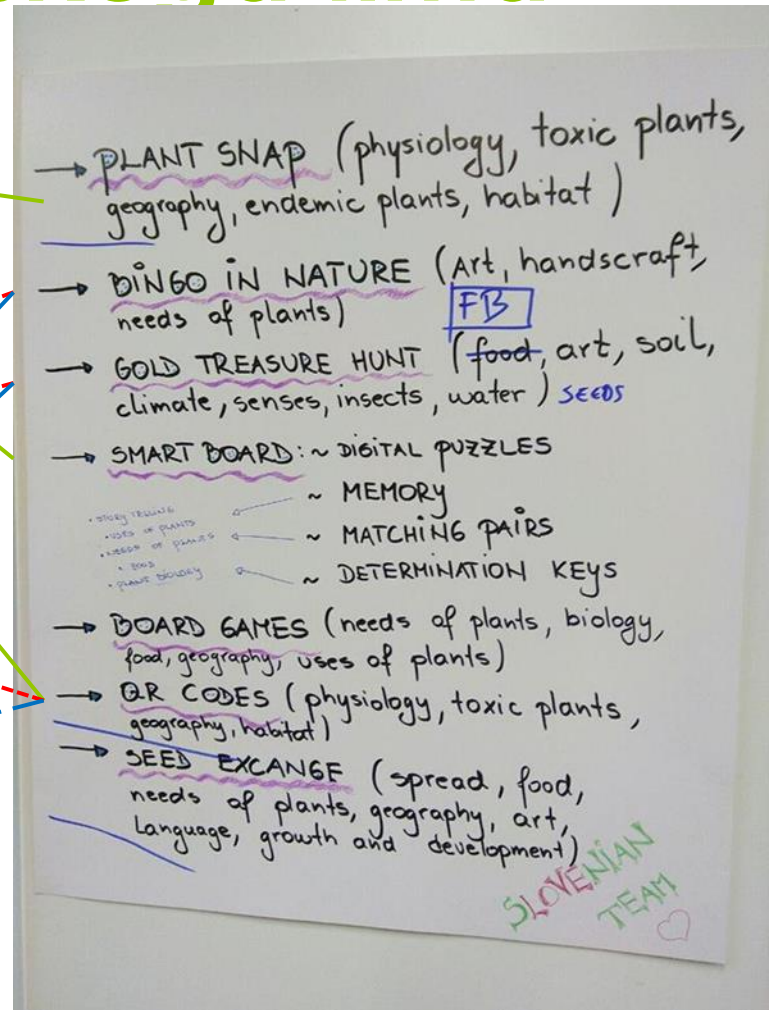 → PLANT SNAP (physiology, toxic plants,
geography, endemic plants, habitat)
→ BINGO IN NATURE (Art, handscraft,
needs of plants)
FB
→ GOLD TREASURE HUNT (food, art, soil,
climate, senses, insects, water) SEEDS
→ SMART BOARD: ~ DIGITAL PUZZLES
~ MEMORY
• STORY TELLING
• USES OF PLANTS
~ MATCHING PAIRS
• NEEDS OF PLANTS
• FOOD
• PLANT BIOLOGY
~ DETERMINATION KEYS
→ BOARD GAMES (needs of plants, biology,
food, geography, uses of plants)
→ QR CODES (physiology, toxic plants,
geography, habitat)
→ SEED EXCANGE (spread, food,
needs of plants, geography, art,
Language, growth and development)
SLOVENIAN
TEAM